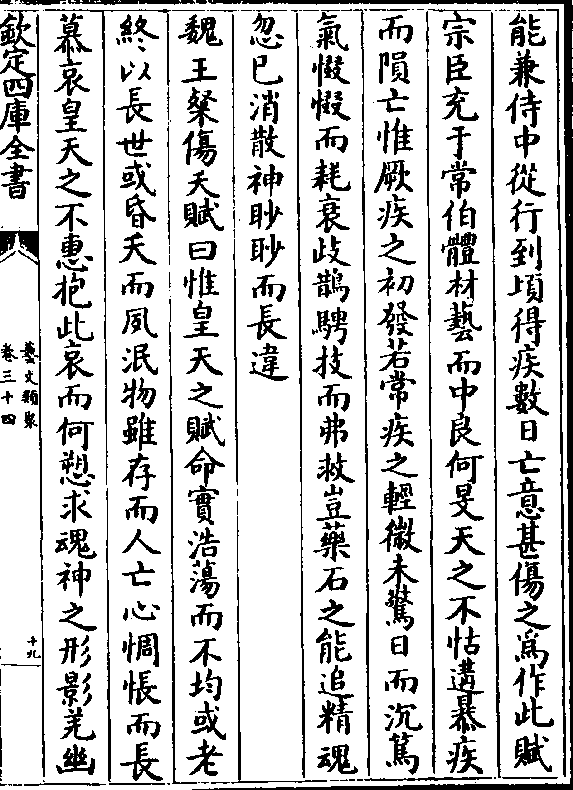 能兼侍中從行到項得疾數日亡意甚傷之為作此賦
宗臣充于常伯體材藝而中良何旻天之不怙遘暴疾
而隕亡惟厥疾之初發若常疾之輕微未驚日而沉篤
氣惙惙而耗衰歧鵲騁技而弗救豈藥石之能追精魂
忽已消散神眇眇而長違
魏王粲傷夭賦曰惟皇天之賦命實浩蕩而不均或老
終以長世或昏夭而夙泯物雖存而人亡心惆悵而長
慕哀皇天之不惠抱此哀而何愬求魂神之形影羌幽
欽定四庫全書
藝文類聚
卷三十四
十九